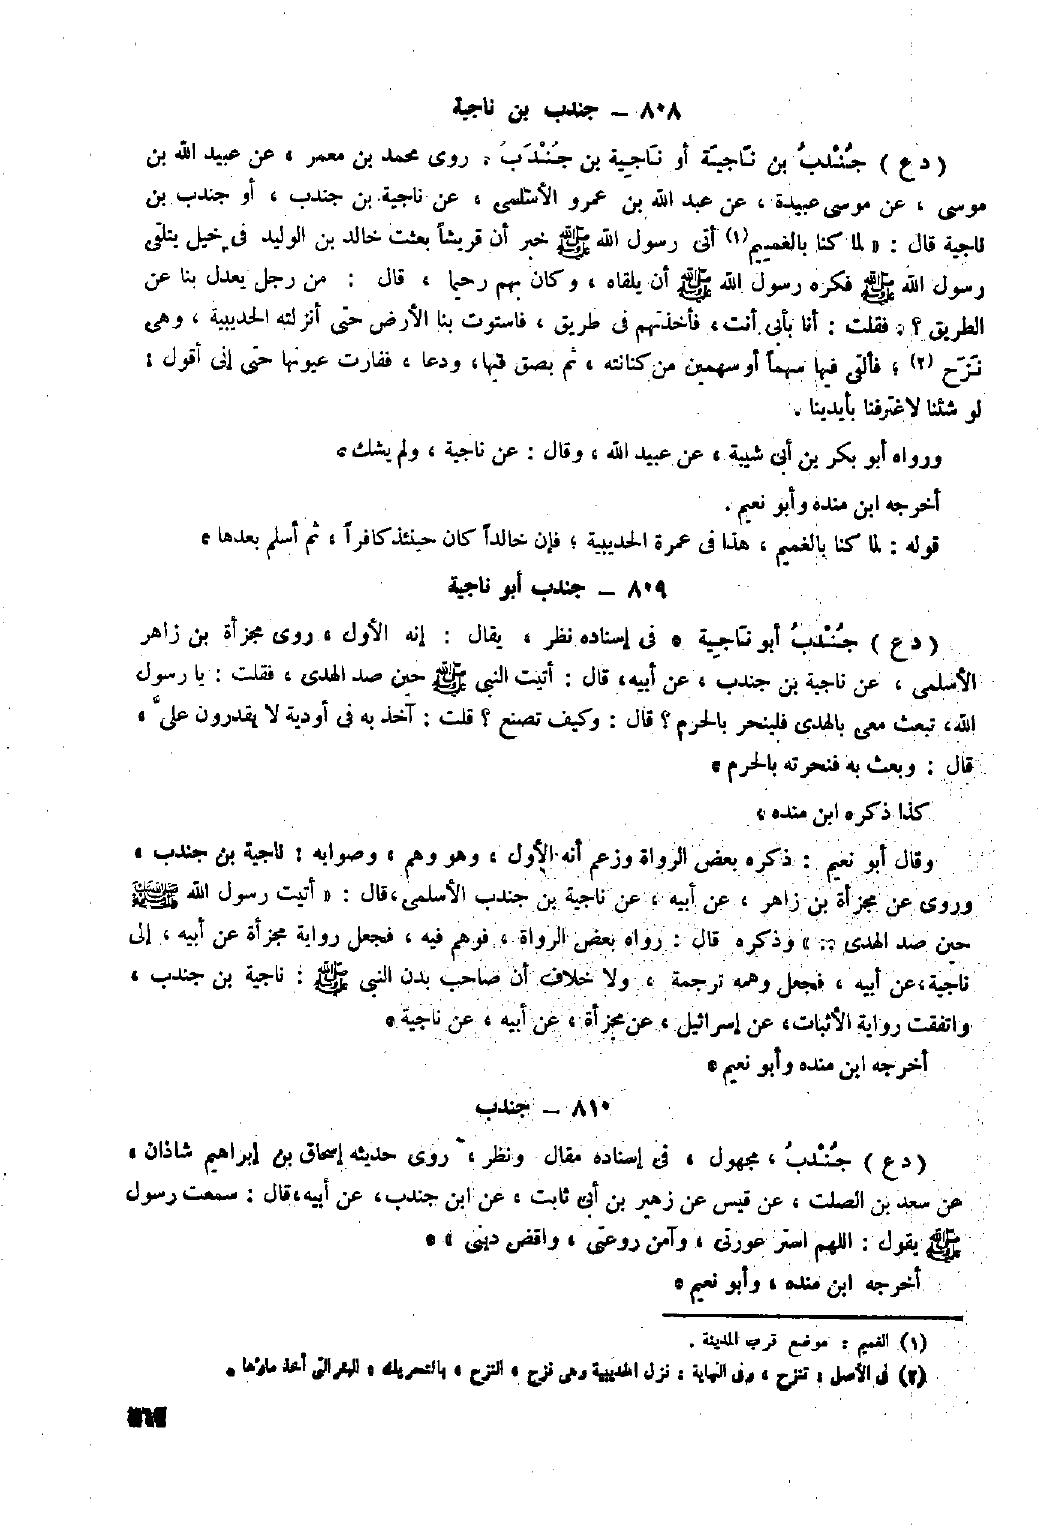 ٨٠٨ – جندب بن ناجية
( د ع ) جُنْدبُ بن نَاجيَة أو نَاجِية بن جُنْدَبَ . روى محمد بن معمر ، عن عبيد الله بن
موسى ، عن موسى عبيدة ، عن عبد الله بن عمرو الأسْلمى ، عن ناجية بن جندب ، أو جندب بن
ناجية قال : « لما كنا بالغميم(١) أتى رسول الله ﷺ خبر أن قريشاً بعثت خالد بن الوليد فى خيل يتلقى
رسول الله ﷺ فكره رسول الله ﷺ أن يلقاه ، وكان بهم رحيما ، قال : من رجل يعدل بنا عن
الطريق ؟ فقلت : أنا بأبى أنت، فأخذتهم فى طريق ، فاستوت بنا الأرض حتى أنزلته الحديبية ، وهى
نَزَح (٢) ؛ فألقى فيها سهماً أو سهمين من كنانته ، ثم بصق فيها، ودعا ، ففارت عيونها حتى إنى أقول :
لو شئنا لاغترفنا بأيدينا .
ورواه أبو بكر بن أبى شيبة ، عن عبيد الله ، وقال : عن ناجية ، ولم يشك .
أخرجه ابن منده وأبو نعيم .
قوله : لما كنا بالغميم ، هذا فى عمرة الحديبية ؛ فإن خالداً كان حينئذ كافراً ، ثم أسلم بعدها .
٨٠٩ – جندب أبو ناجية
( د ع ) جُنْدبُ أبو نَاجِية . فى إسناده نظر ، يقال : إنه الأول ، روى مجزأة بن زاهر
الأسلمى ، عن ناجية بن جندب ، عن أبيه، قال : أتيت النبى ﷺ حين صد الهدى ، فقلت : يا رسول
الله، تبعث معى بالهدى فلينحر بالحرم ؟ قال : وكيف تصنع ؟ قلت : آخذ به فى أودية لا يقدرون علىّ ،
قال : وبعث به فنحرته بالحرم .
كذا ذكره ابن منده ،
وقال أبو نعيم : ذكره بعض الرواة وزعم أنه الأول ، وهو وهم ، وصوابه : ناجية بن جندب ،
وروى عن مجزأة بن زاهر ، عن أبيه ، عن ناجية بن جندب الأسلمى،قال : « أتيت رسول الله ﷺ
حين صد الهدى .. » وذكره قال : رواه بعض الرواة ، فوهم فيه ، فجعل رواية مجزأة عن أبيه ، إلى
ناجية،عن أبيه ، فجعل وهمه ترجمة ، ولا خلاف أن صاحب بدن النبى ﷺ : ناجية بن جندب ،
واتفقت رواية الأثبات، عن إسرائيل ، عن مجزأة ، عن أبيه ، عن ناجية .
أخرجه ابن منده وأبو نعيم .
٨١٠ – جندب
( د ع ) جُنْدبُ ، مجهول ، فى إسناده مقال ونظر ، روى حديثه إسحاق بن إبراهيم شاذان ،
عن سعد بن الصلت ، عن قيس عن زهير بن أبى ثابت ، عن ابن جندب، عن أبيه،قال : سمعت رسول
ﷺ يقول : اللهم استر عورتى ، وآمن روعتى ، واقض دينى » .
أخرجه ابن منده ، وأبو نعيم .
(١) الغميم : موضع قرب المدينة .
(٢) فى الأصل : تنزح ، وفى النهاية : نزل الحديبية وهى نزح ، النزح ، بالتحريك ، البئر التى أخذ ماؤها .